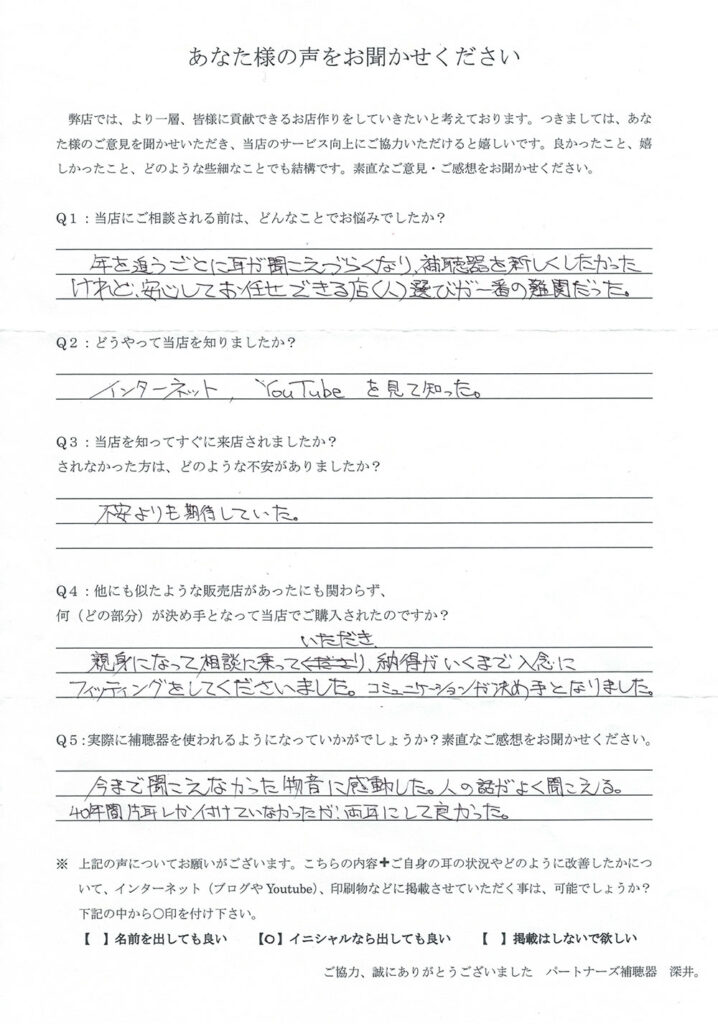 あなた様の声をお聞かせください
弊店では、より一層、皆様に貢献できるお店作りをしていきたいと考えております。つきましては、あな
た様のご意見を聞かせいただき、当店のサービス向上にご協力いただけると嬉しいです。良かったこと、嬉
しかったこと、どのような些細なことでも結構です。素直なご意見・ご感想をお聞かせください。
Q1：当店にご相談される前は、どんなことでお悩みでしたか？
年を追うごとに耳が聞こえづらくなり、補聴器を新しくしたかった
けれど、安心してお任せできる店(人)選びが一番の難関だった。
Q2：どうやって当店を知りましたか？
インターネット, YouTube を見て知った。
Q3：当店を知ってすぐに来店されましたか？
されなかった方は、どのような不安がありましたか？
不安よりも期待していた。
Q4：他にも似たような販売店があったにも関わらず、
何（どの部分）が決め手となって当店でご購入されたのですか？
いただき
親身になって相談に乗ってくださり、納得がいくまで入念に
フィッティングをしてくださいました。コミュニケーションが決め手となりました。
Q5：実際に補聴器を使われるようになっていかがでしょうか？素直なご感想をお聞かせください。
今まで聞こえなかった物音に感動した。人の話がよく聞こえる。
40年間片耳しか付けていなかったが、両耳にして良かった。
※ 上記の声についてお願いがございます。こちらの内容＋ご自身の耳の状況やどのように改善したかにつ
いて、インターネット（ブログや Youtube）、印刷物などに掲載させていただく事は、可能でしょうか？
下記の中から〇印を付け下さい。
【　】名前を出しても良い　【O】イニシャルなら出しても良い　【　】掲載はしないで欲しい
ご協力、誠にありがとうございました　パートナーズ補聴器　深井。